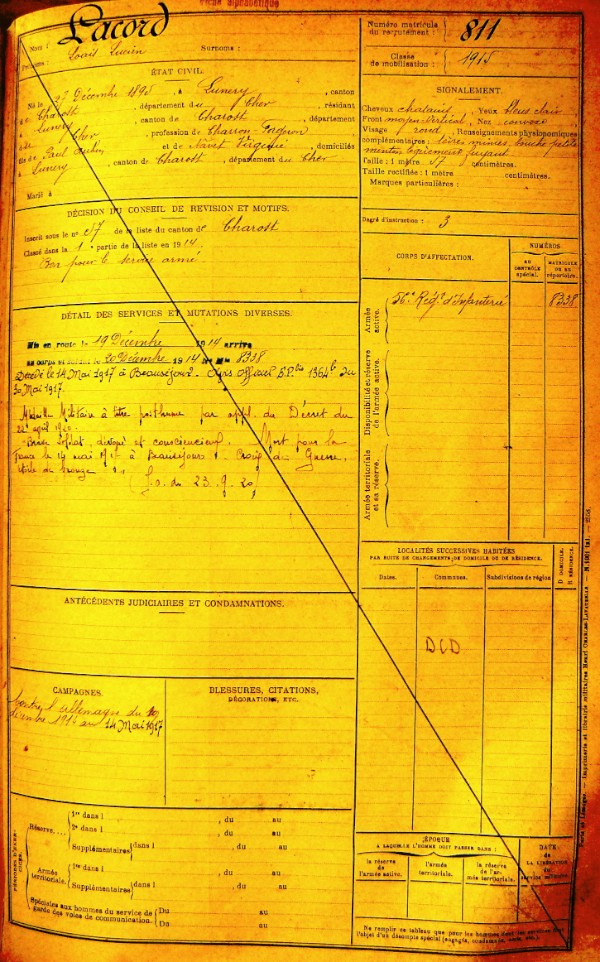 Fiche alphabétique
Lacord
Nom :
Prénoms : Louis Lucien Surnoms :
Numéro matricule du recrutement : 811
Classe de mobilisation : 1915
ÉTAT CIVIL.
Né le 27 Décembre 1895, à Lunery, canton
de Charost, département du Cher, résidant
à Lunery, canton de Charost, département
du Cher, profession de Charron Forgeron
fils de Paul Aubin et de Navet Virginie, domiciliés
à Lunery, canton de Charost, département du Cher
Marié à
SIGNALEMENT.
Cheveux chatain, Yeux bleus clair
Front moyen vertical, Nez convexe
Visage rond, Renseignements physionomiques
complémentaires : lèvres minces, bouche petite
menton fuyant
Taille : 1 mètre 57 centimètres.
Taille rectifiée : 1 mètre centimètres.
Marques particulières :
DÉCISION DU CONSEIL DE REVISION ET MOTIFS.
Inscrit sous le n° 57 de la liste du canton de Charost
Classé dans la 1e partie de la liste en 1914.
Bon pour le service armé
Degré d'instruction : 3
CORPS D'AFFECTATION.
NUMÉROS
AU CONTRÔLE spécial.
MATRICULE OU AU répertoire.
Armée active.
56e Régt d'Infanterie 8338
Disponibilité et réserve de l'armée active.
Armée territoriale et sa réserve.
DÉTAIL DES SERVICES ET MUTATIONS DIVERSES.
Mis en route le 19 Décembre 1914 arrivé
au corps et soldat le 20 Décembre 1914 N° Mle 8338
Décédé le 14 Mai 1917 à Beauséjour. Avis officiel S.P. 1364 du
30 Mai 1917.
Médaille Militaire à titre posthume par appl. du Décret du
22 avril 1920.
Brave soldat, dévoué et consciencieux. Mort pour la
France le 14 mai 1917 à Beauséjour. Croix de Guerre.
étoile de bronze
(J.o. du 23.9.20)
LOCALITÉS SUCCESSIVES HABITÉES
PAR SUITE DE CHANGEMENTS DE DOMICILE OU DE RÉSIDENCE.
Dates. Communes. Subdivisions de région D DOMICILE. R RÉSIDENCE.
DCD
ANTÉCÉDENTS JUDICIAIRES ET CONDAMNATIONS.
CAMPAGNES.
Contre l'Allemagne du 19
décembre 1914 au 14 Mai 1917
BLESSURES, CITATIONS,
DÉCORATIONS, ETC.
Réserve.... 1er dans l , du au
2e dans l , du au
Supplémentaires dans l , du au
Armée territoriale. 1er dans l , du au
Supplémentaires dans l , du au
Spéciales aux hommes du service de garde des voies de communication. Du au
Du au
ÉPOQUE
A LAQUELLE L'HOMME DOIT PASSER DANS :
la réserve de l'armée active.
l'armée territoriale.
la réserve de l'armée territoriale.
DATE
de
LA LIBÉRATION
du
service militaire.
Ne remplir ce tableau que pour les hommes dont les services font
l'objet d'un décompte spécial (engagés, condamnés, omis, etc.).
Paris et Limoges. — Imprimerie et librairie militaires Henri CHARLES-LAVAUZELLE